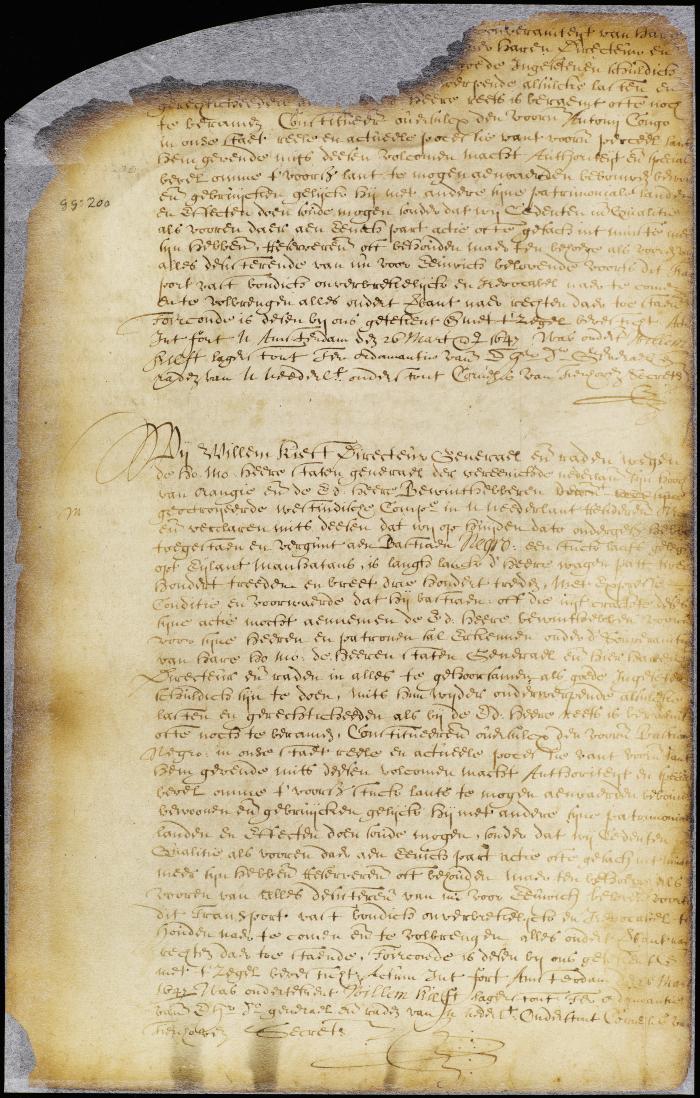 souveraniteyt van haer
haren Directeur en
goede Ingesetenen schuldich
werpende alsulcke lasten en
gerechticheeden heere reets is beraemt ofte noch
te beramen Constitueren oversulcx den voorn Antony Congo
in onse staet reele en actueele possessie vant voorn perceel lants
hem gevende mits deesen volcomen macht Authoriteyt en speciael
bevel omme t'voorsz lant te mogen aenvaerden bebouwen bewoonen
en gebruijcken gelijck hij met andere sijne patrimoniale landen
en Effecten doen soude mogen sonder dat wij Cedenten in Qualite
als vooren daer aen eenich part actie ofte gesach int minste meer
sijn hebben, Reserveren oft behouden maer ten behoeve als vooren van
alles desisterende van nu voor Eeuwich belovende voorts dit trans
port vast bondich onverbreekelijck en Irevocabel naer te comen
ende te volbrengen alles ondert verbant naer rechten daer toe staende
Torconde is desen bij ons geteekent & met t'Zegel bevesticht Actum
Int fort N Amsterdam den 26 Mart A° 1647 Was ondert Willem
Kieft lager stont Ter ordonnantie van D Hr Dr Generael en
raden van N Nederlt onderstont Cornelis van Tienhoven Secrets
gg: 200
Wij Willem Kieft Directeur Generael en raden wegen
de ho: mo: heere staten generael der vereenichde nederlan sijn hooch
van orangie en de Ed: heere Bewinthebberen
geoctroijeerde westindische Compe in N Neederlant Residerende
en verclaren mits deesen dat wij op huijden dato ondergesz hebben
toegestaen en vergunt aen Bastiaen Negro: een stuck lants gelegen
opt Eylant manhatans, is langh langhs d'heere wagen patt twee
hondert treeden en breet drie hondert treden, Met Expresse
Conditie en voorwaerde dat hij bastiaen: oft die uijt crachte deses
sijne actie mocht aennemen de Ed. heere bewinthebberen voorn
voor sijne heeren en patronen sal Erkennen onder d'Souveraniteyt
van haere ho: mo: de heeren staten Generael en hier haeren
Directeur en raden in alles te gehoorsamen als goede Ingesetenen
schuldich sijn te doen, mits hem wijders onderwerpende alsulcke
lasten en gerechticheeden als bij de Ed. heere reets is beraemt
ofte noch te beramen, Constitueeren oversulcx den voorn Bastiaen
Negro: in onse staet reele en actueele possessie vant voorn lant
hem gevende mits deesen volcomen macht Authoriteyt en speciael
bevel omme t'voorsz stuck lants te mogen aenvaerden bebouwen
bewoonen en gebruijcken gelijck hij met andere sijne patrimoniale
landen en Effecten doen soude mogen, sonder dat wij Cedenten
Qualite als vooren daer aen Eenich part actie ofte gesach int minste
meer sijn hebben Reserveren oft behouden maer ten behoeve als
vooren van alles desisteren van nu voor Eeuwich belovende voorts
dit Transport vast bondich onverbreekelijck en Irevocabel te
houden naer te comen en te volbrengen alles ondert verbant naer
rechten daer toe staende, Torconde is desen bij ons geteekent
met t'Zegel bevesticht, Actum Int fort Amsterdam den 26 Mart
1647 Was onderteekent Willem Kieft lager stont Ter ordonnantie
van D Hr Dr generael en raden van N nederlt Onderstont Cornelis van
Tienhoven Secrets